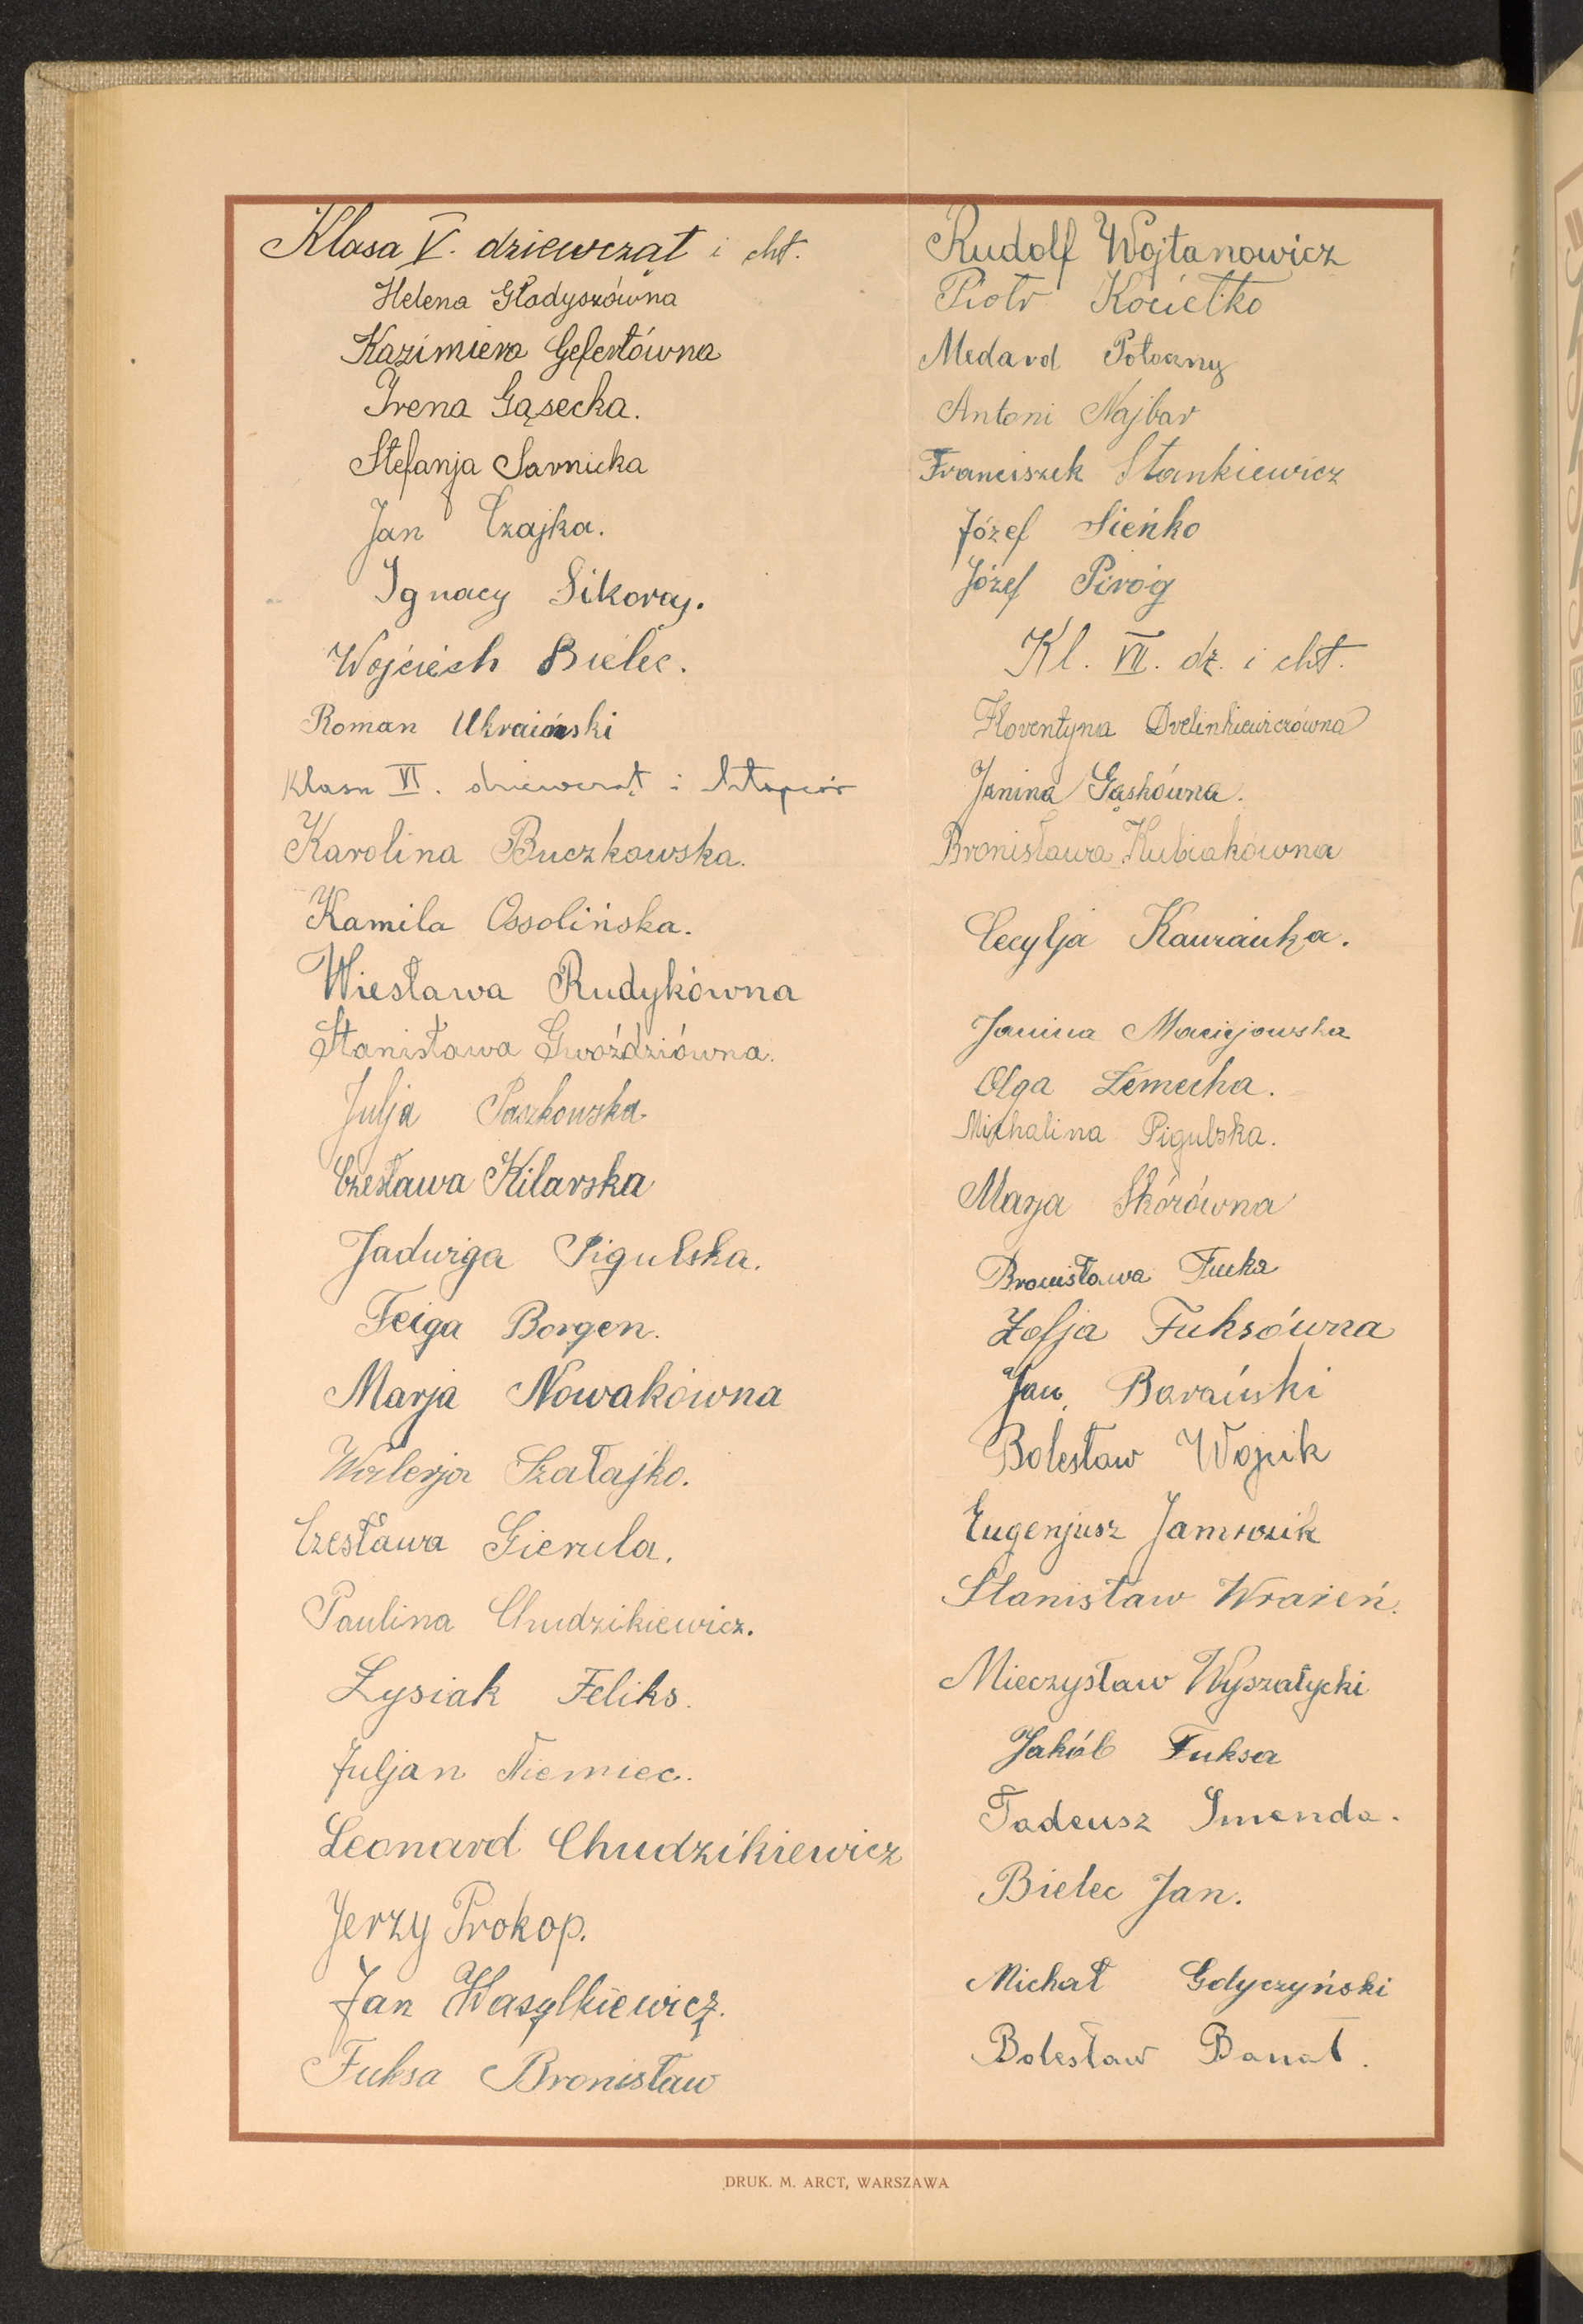 Klasa V. dziewcząt i chł.
Helena Gładyszówna
Kazimiera Gefertówna
Irena Gąsecka.
Stefanja Sarnicka
Jan Czajka.
Ignacy Sikora.
Wojciech Bielec.
Roman Ukraiński
Klasa VI. dziewcząt i chłopców
Karolina Buczkowska.
Kamila Ossolińska.
Wiesława Rudykówna
Stanisława Gwoździówna.
Julja Paszkowska
Czesława Kilarska
Jadwiga Pigulska.
Feiga Borgen.
Marja Nowakówna
Walerja Szałajko.
Czesława Gierula.
Paulina Chudzikiewicz.
Łysiak Feliks.
Juljan Niemiec.
Leonard Chudzikiewicz
Jerzy Prokop.
Jan Wasylkiewicz.
Fuksa Bronisław
Rudolf Wojtanowicz
Piotr Kociełko
Medard Potoczny
Antoni Najbar
Franciszek Stankiewicz
Józef Sieńko
Józef Piróg
Kl. VII. dz. i chł.
Florentyna
Janina Gąskówna.
Bronisława Kubiakówna
Cecylja
Janina Maciejowska
Olga Lemecha.
Michalina Pigulska.
Marja Skórówna
Bronisława Fucka
Zofja Fuksówna
Jan Barański
Bolesław Wojcik
Eugenjusz Jamrozik
Stanisław Wrażeń.
Mieczysław Wyszatycki
Jakób Fuksa
Tadeusz Smenda.
Bielec Jan.
Michał Gdyczyński
Bolesław Banat.
DRUK. M. ARCT, WARSZAWA